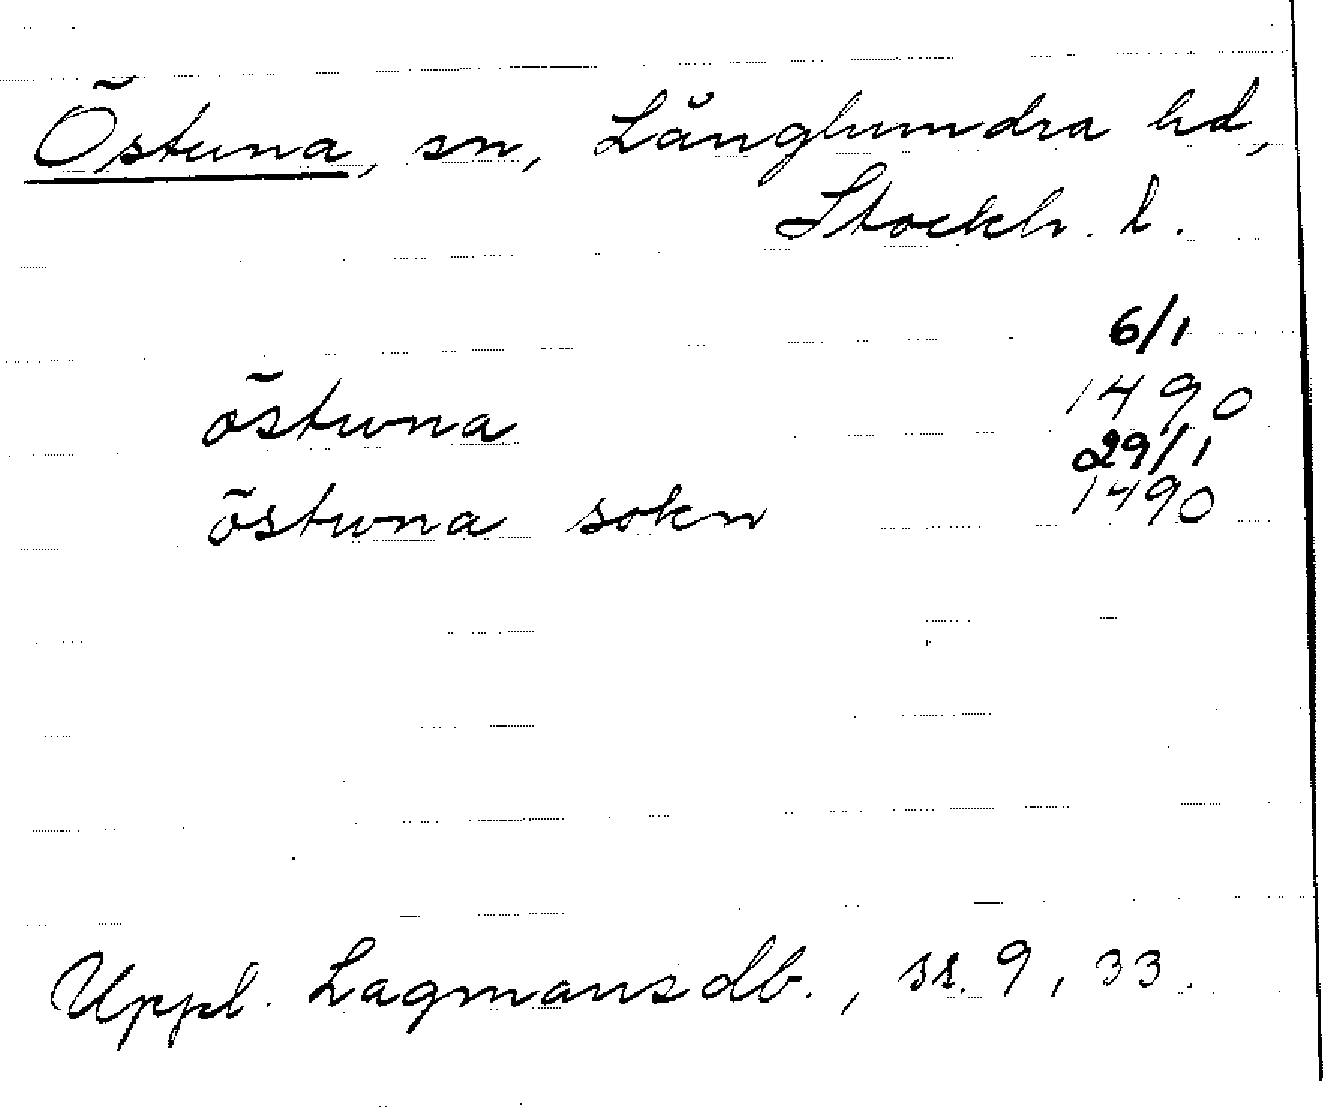 Östuna, sn, Långhundra hd,
Stockh. l.
6/1
östwna 1490
29/1
östwna sokn 1490
Uppl. Lagmansdb., ss. 9, 33.